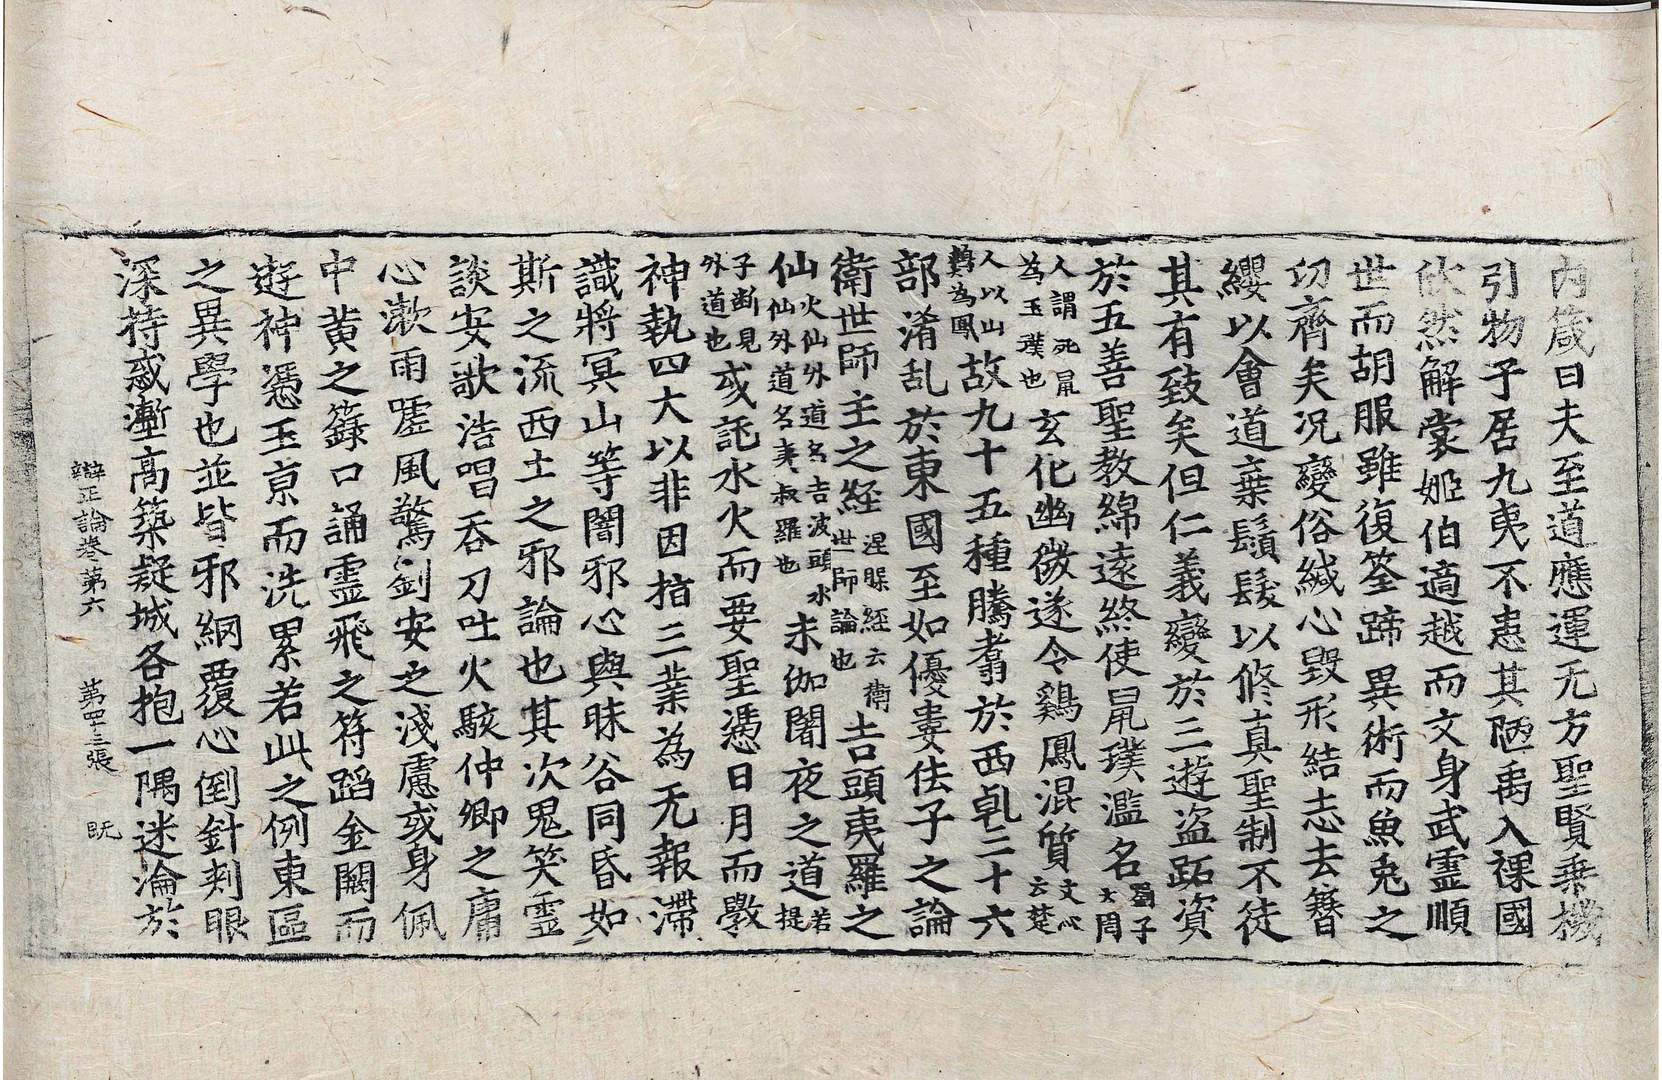 内箴曰夫至道應運无方聖賢乗機
引物子居九夷不患其陋禹入裸國
欣然解裳姬伯適越而文身武靈順
世而胡服雖復筌蹄異術而魚兎之
切齊矣况變俗緘心毀形結志去簪
纓以會道棄鬚髮以修真聖制不徒
其有致矣但仁義變於三遊盗跖資
於五善聖教綿遠終使鼠璞濫名蜀子大周
人謂死鼠為玉璞也玄化幽微遂令鷄鳳混質文心云楚
人以山鷄為鳳故九十五種騰翥於西乹三十六
部淆乱於東國至如優婁佉子之論
衛世師主之經涅槃經云衛世師論也吉頭夷羅之
仙火仙外道名吉波頭水仙外道名夷叔羅也末伽闍夜之道若提
子断見外道也或託水火而要聖憑日月而斆
神執四大以非因指三業為无報滯
識將冥山等闇邪心與昧谷同昏如
斯之流西土之邪論也其次鬼笑靈
談安歌浩唱吞刀吐火駭仲卿之庸
心漱雨嘘風驚劉安之淺慮或身佩
中黄之籙口誦靈飛之符蹈金闕而
遊神憑玉京而洗累若此之例東區
之異學也並皆邪網覆心倒針刺眼
深持惑塹高築疑城各抱一隅迷淪於
辯正論卷第六 第四十三張 既